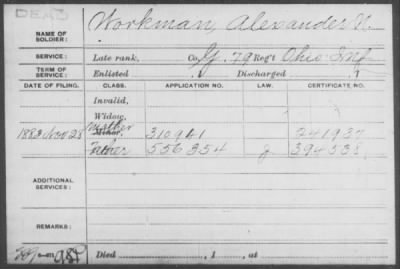 DEAD
NAME OF SOLDIER: Workman, Alexander N.
SERVICE: Late rank, Co. G. 79 Reg't Ohio Inf
TERM OF SERVICE: Enlisted , 1 Discharged , 1
DATE OF FILING. CLASS. APPLICATION NO. LAW. CERTIFICATE NO.
Invalid,
Widow,
1883 Nov 28 Mother Minor, 310941 241937
Father 556354 J 394538
ADDITIONAL SERVICES:
REMARKS:
Died , 1 , at